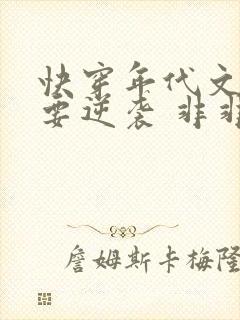 快穿年代文
要逆袭 非
詹姆斯卡梅隆